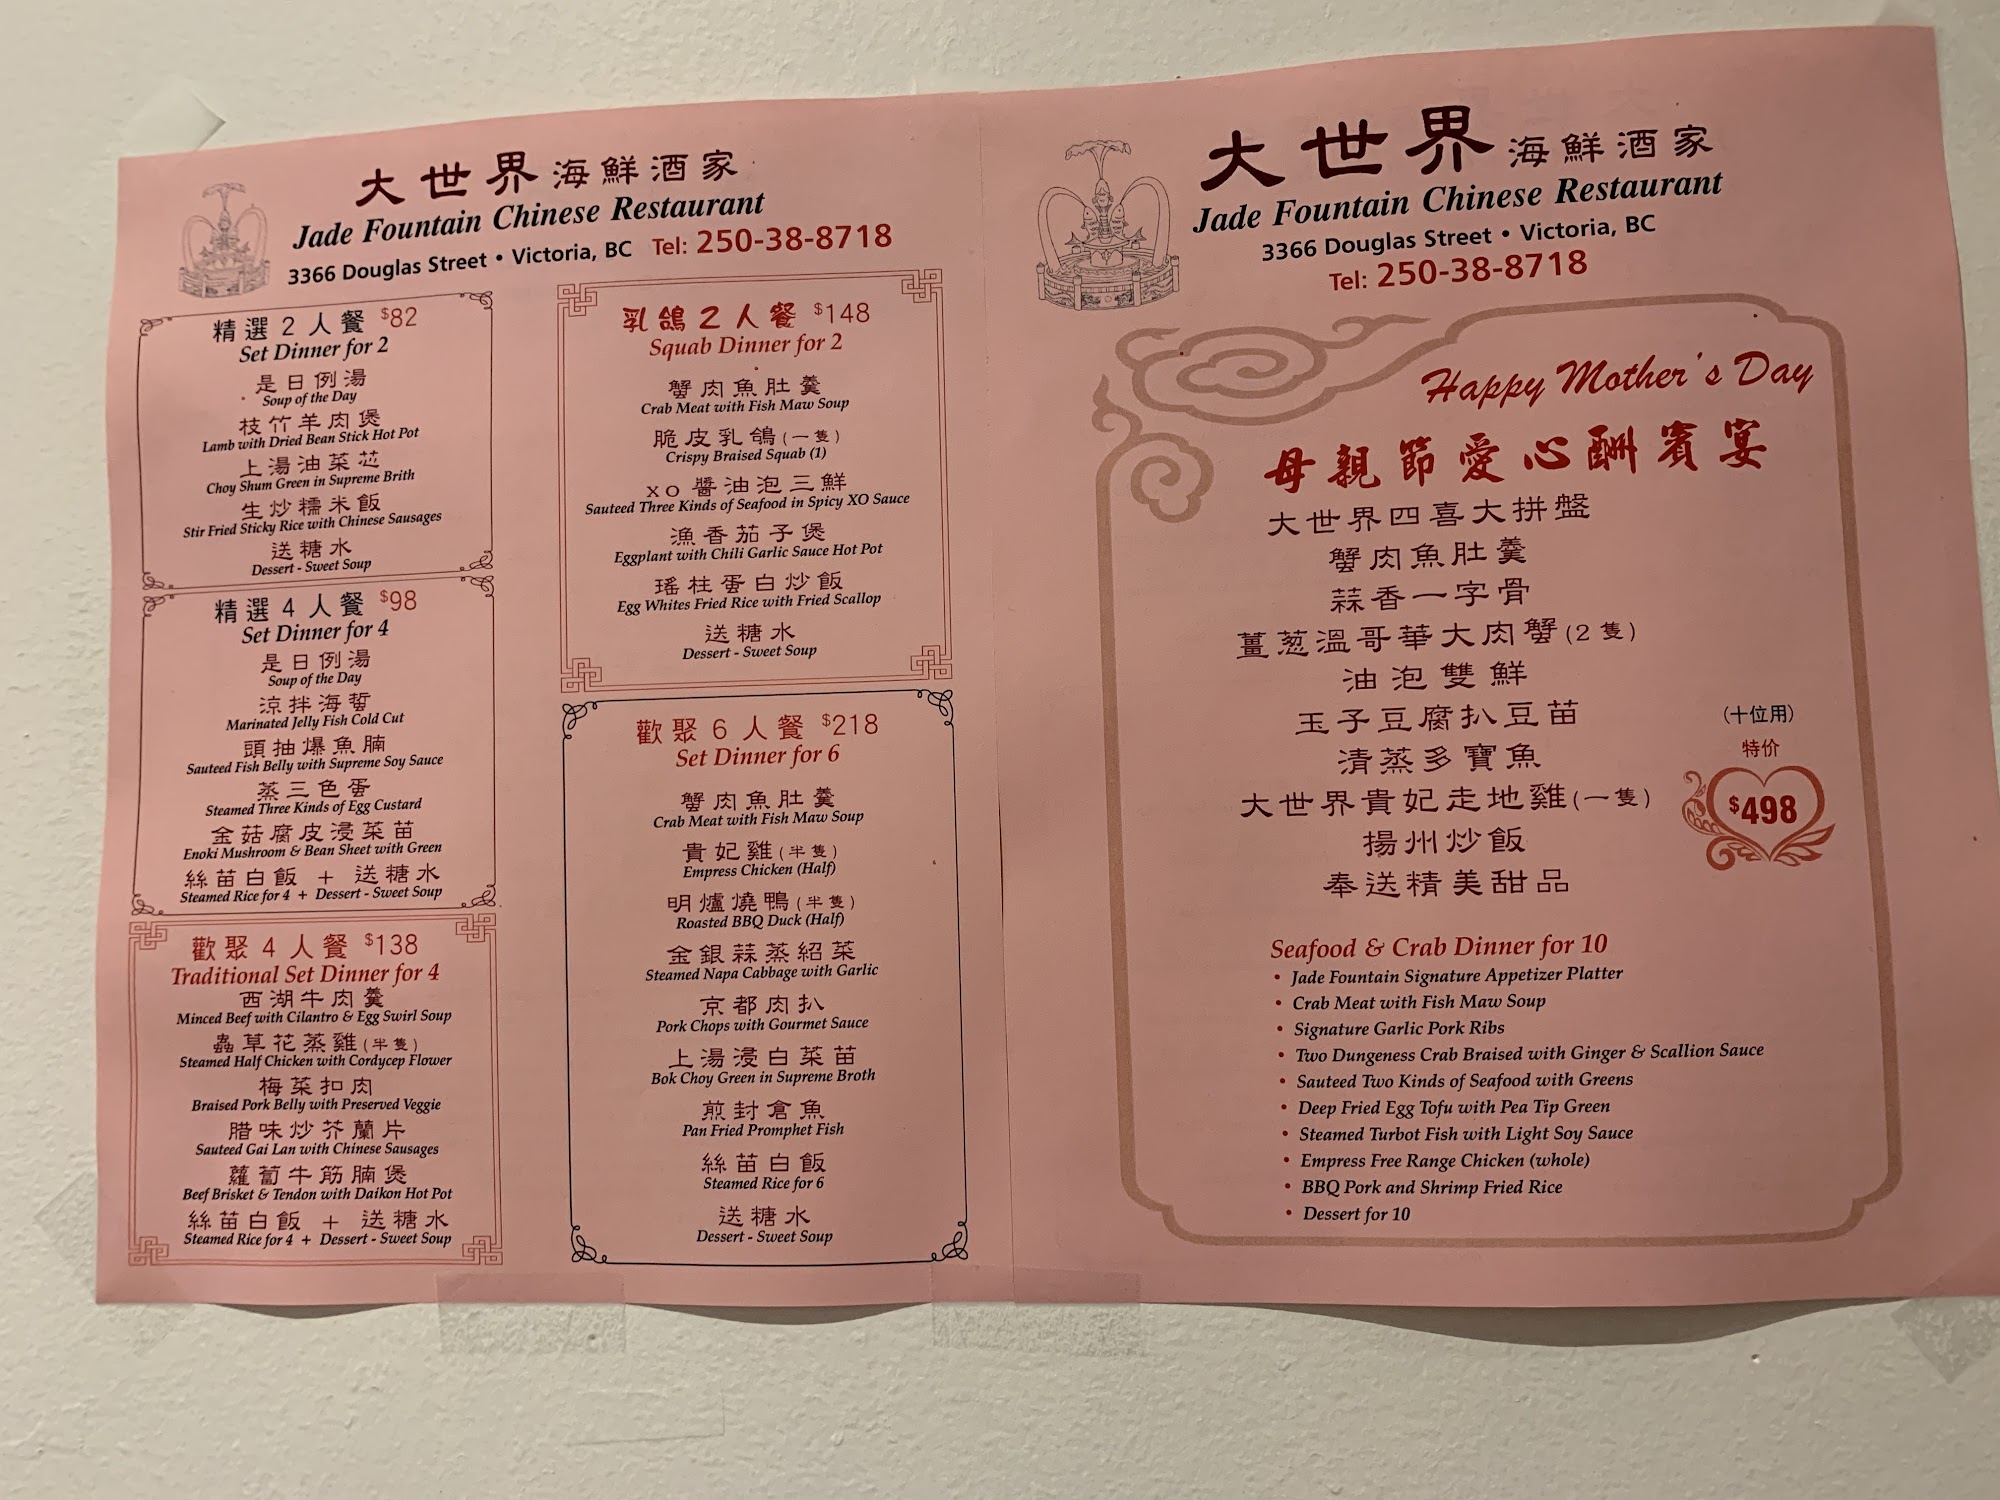 大世界海鮮酒家
Jade Fountain Chinese Restaurant
3366 Douglas Street • Victoria, BC Tel: 250-38-8718
精選2人餐 $82
Set Dinner for 2
是日例湯
Soup of the Day
枝竹羊肉煲
Lamb with Dried Bean Stick Hot Pot
上湯油菜芯
Choy Shum Green in Supreme Brith
生炒糯米飯
Stir Fried Sticky Rice with Chinese Sausages
送糖水
Dessert - Sweet Soup
精選4人餐 $98
Set Dinner for 4
是日例湯
Soup of the Day
涼拌海蜇
Marinated Jelly Fish Cold Cut
頭抽爆魚腩
Sauteed Fish Belly with Supreme Soy Sauce
蒸三色蛋
Steamed Three Kinds of Egg Custard
金菇腐皮浸菜苗
Enoki Mushroom & Bean Sheet with Green
絲苗白飯 + 送糖水
Steamed Rice for 4 + Dessert - Sweet Soup
歡聚4人餐 $138
Traditional Set Dinner for 4
西湖牛肉羹
Minced Beef with Cilantro & Egg Swirl Soup
蟲草花蒸雞(半隻)
Steamed Half Chicken with Cordycep Flower
梅菜扣肉
Braised Pork Belly with Preserved Veggie
腊味炒芥蘭片
Sauteed Gai Lan with Chinese Sausages
蘿蔔牛筋腩煲
Beef Brisket & Tendon with Daikon Hot Pot
絲苗白飯 + 送糖水
Steamed Rice for 4 + Dessert - Sweet Soup
乳鴿2人餐 $148
Squab Dinner for 2
蟹肉魚肚羹
Crab Meat with Fish Maw Soup
脆皮乳鴿(一隻)
Crispy Braised Squab (1)
XO醬油泡三鮮
Sauteed Three Kinds of Seafood in Spicy XO Sauce
漁香茄子煲
Eggplant with Chili Garlic Sauce Hot Pot
瑤柱蛋白炒飯
Egg Whites Fried Rice with Fried Scallop
送糖水
Dessert - Sweet Soup
歡聚6人餐 $218
Set Dinner for 6
蟹肉魚肚羹
Crab Meat with Fish Maw Soup
貴妃雞(半隻)
Empress Chicken (Half)
明爐燒鴨(半隻)
Roasted BBQ Duck (Half)
金銀蒜蒸紹菜
Steamed Napa Cabbage with Garlic
京都肉扒
Pork Chops with Gourmet Sauce
上湯浸白菜苗
Bok Choy Green in Supreme Broth
煎封倉魚
Pan Fried Promphet Fish
絲苗白飯
Steamed Rice for 6
送糖水
Dessert - Sweet Soup
大世界海鮮酒家
Jade Fountain Chinese Restaurant
3366 Douglas Street • Victoria, BC
Tel: 250-38-8718
Happy Mother's Day
母親節愛心酬賓宴
大世界四喜大拼盤
蟹肉魚肚羹
蒜香一字骨
薑葱溫哥華大肉蟹(2隻)
油泡雙鮮
玉子豆腐扒豆苗
清蒸多寶魚
大世界貴妃走地雞(一隻)
揚州炒飯
奉送精美甜品
(十位用)
特价
$498
Seafood & Crab Dinner for 10
• Jade Fountain Signature Appetizer Platter
• Crab Meat with Fish Maw Soup
• Signature Garlic Pork Ribs
• Two Dungeness Crab Braised with Ginger & Scallion Sauce
• Sauteed Two Kinds of Seafood with Greens
• Deep Fried Egg Tofu with Pea Tip Green
• Steamed Turbot Fish with Light Soy Sauce
• Empress Free Range Chicken (whole)
• BBQ Pork and Shrimp Fried Rice
• Dessert for 10